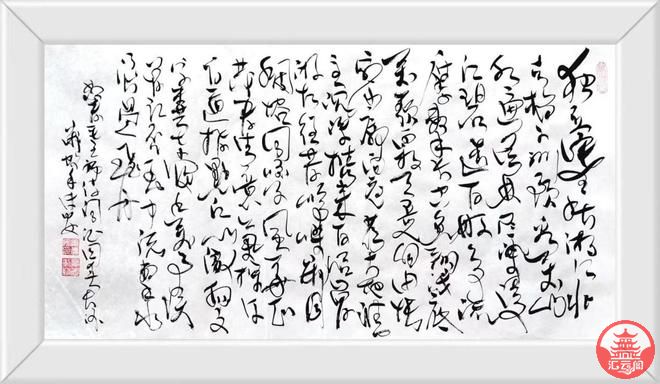 独立寒秋湘江北
去橘子洲头看万山
红遍层林尽染漫
江碧透百舸争流
鹰击长空鱼翔浅底
万类霜天竞自由怅
寥廓问苍茫大地谁
主沉浮携来百侣曾
游忆往昔峥嵘岁月
稠恰同学少年风华正
茂书生意气挥斥
方遒指点江山激扬文
字粪土当年万户侯
曾记否到中流击水
浪遏飞舟
毛主席诗词沁园春长沙
汇云阁